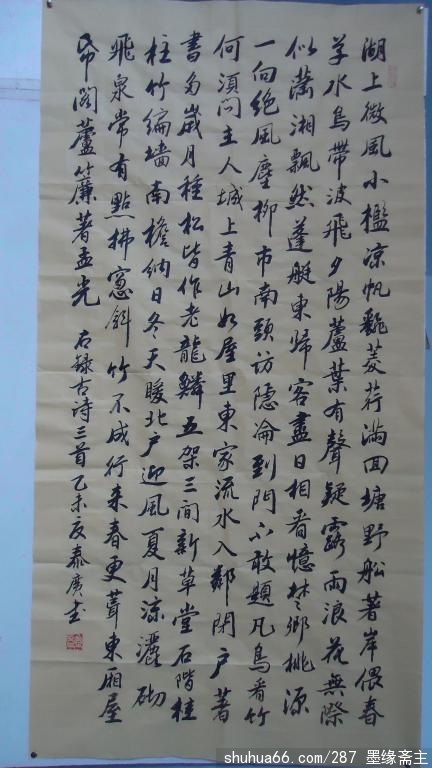 湖上微風小檻凉帆翻菱荇滿回塘野船著岸偎春
草水鳥帶波飛夕陽蘆葉有聲疑露雨浪花無際
似瀟湘飄然蓬艇東歸客盡日相看憶楚鄉桃源
一向絶風塵柳市南頭訪隱淪到門不敢題凡鳥看竹
何須問主人城上青山如屋里東家流水入鄰閉户著
書多歲月種松皆作老龍鱗五架三間新草堂石階桂
柱竹編墻南檐納日冬天暖北户迎風夏月凉灑砌
飛泉常有點拂窻斜竹不成行来春更葺東廂屋
帋閣蘆簾著孟光 右録古诗三首乙未夏泰廣书
shuhua66.com/287 墨缘斋主